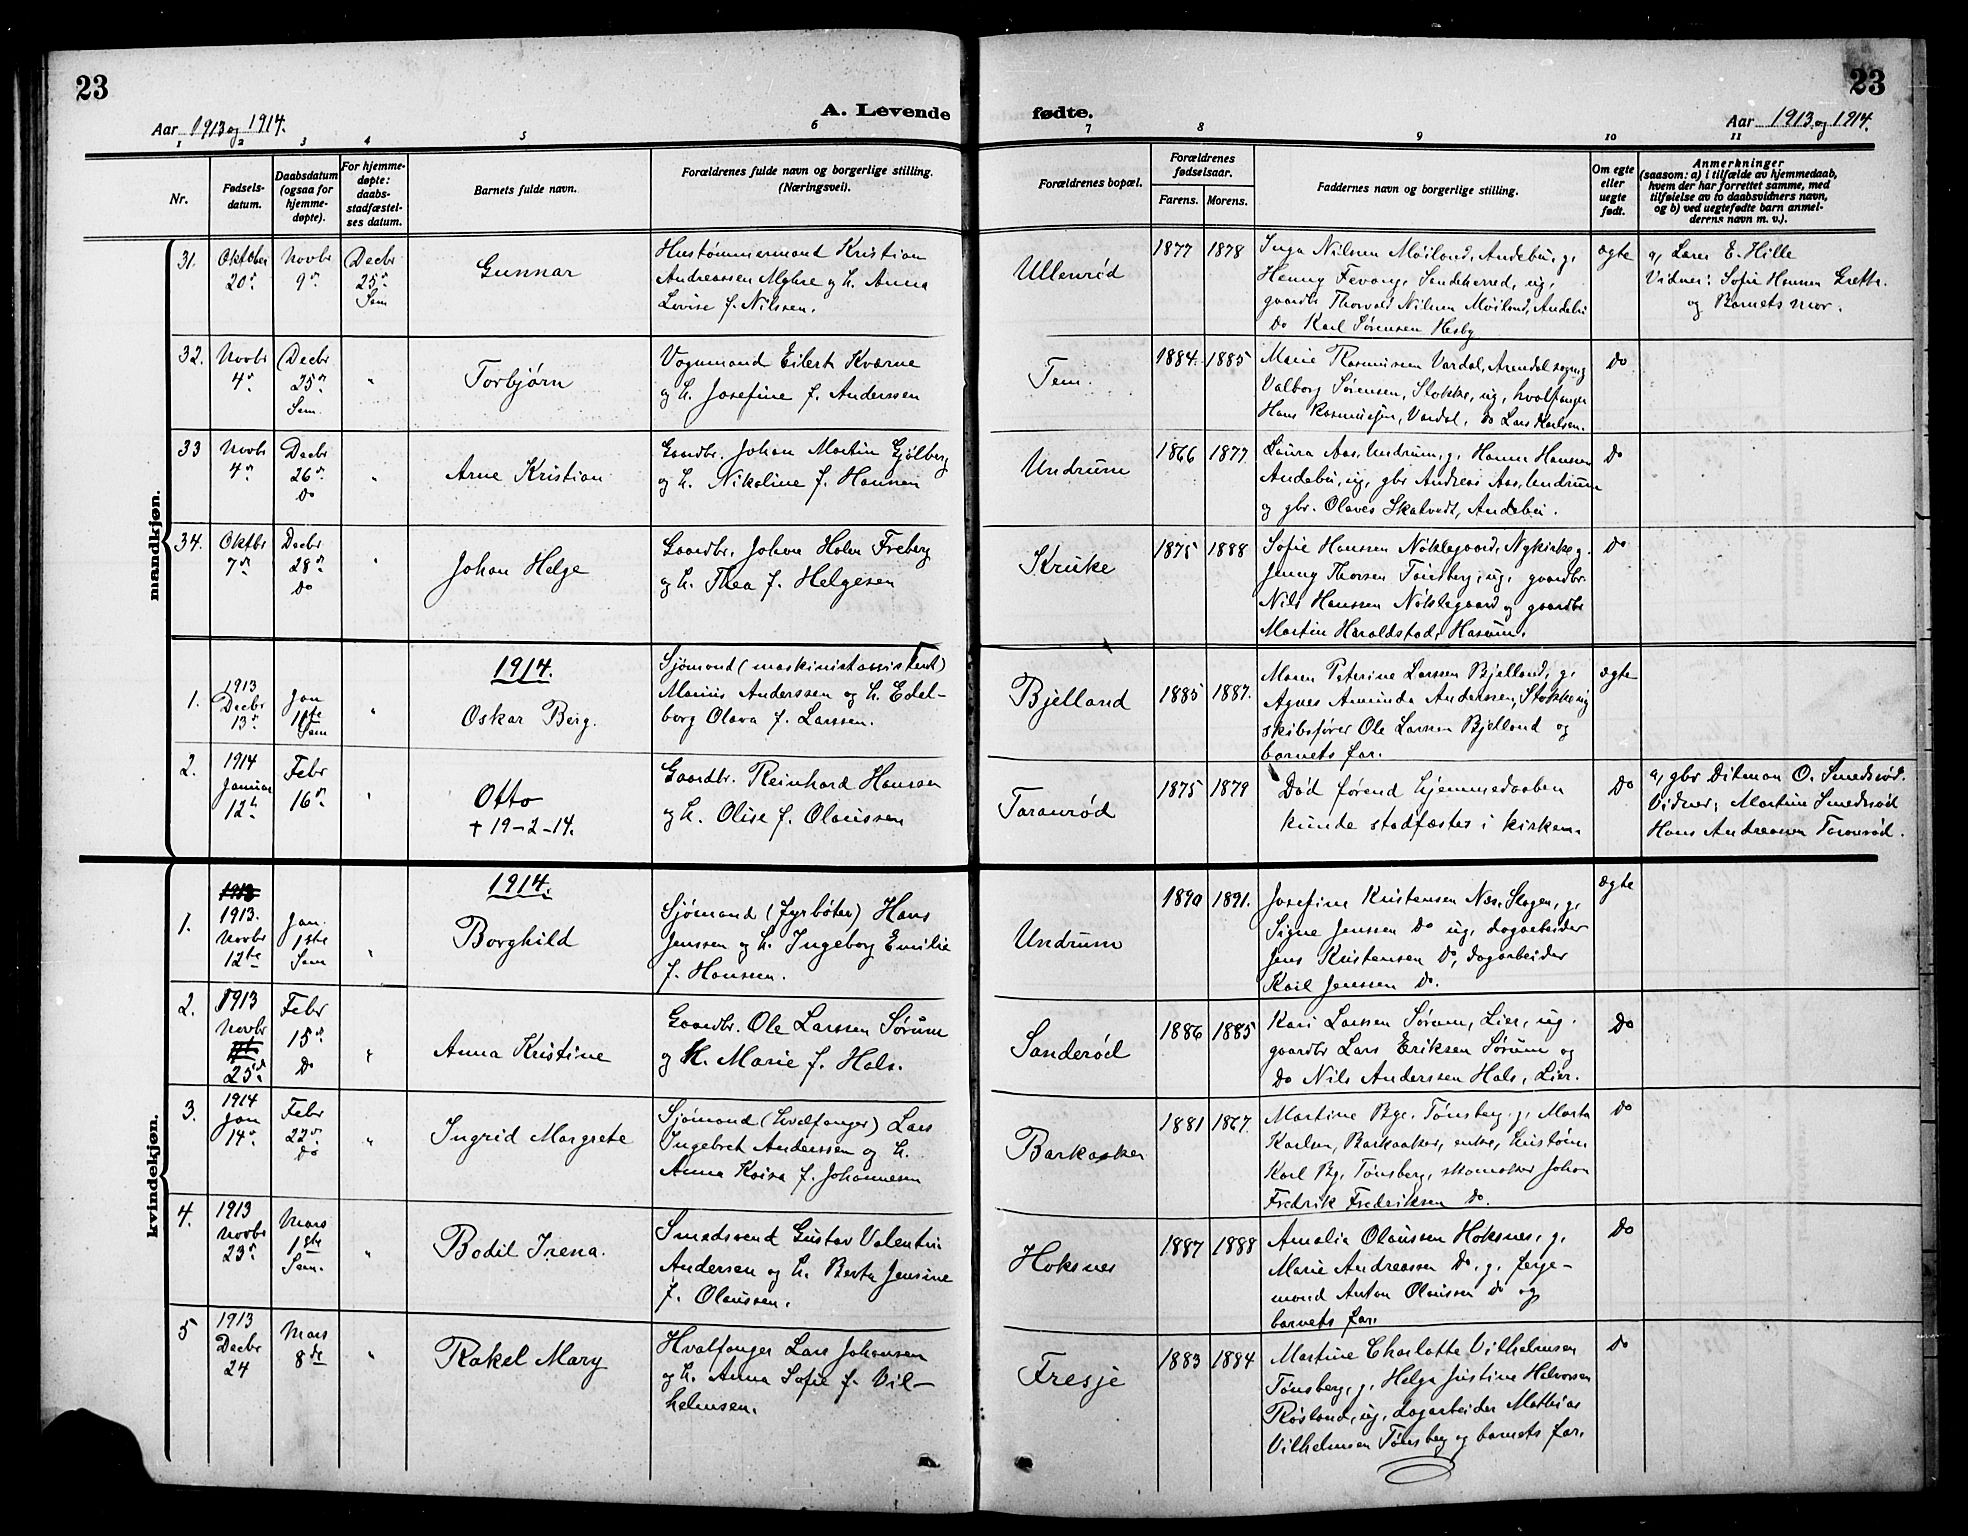 23
23
A. Levende fødte.
Aar 1913 og 1914.
Aar 1913 og 1914.
1 2 3 4 5 6 7 8 9 10 11
Nr.
Fødsels-
datum.
Daabsdatum
(ogsaa for
hjemme-
døpte).
For hjemme-
døpte:
daabs-
stadfæstel-
ses datum.
Barnets fulde navn.
Forældrenes fulde navn og borgerlige stilling.
(Næringsvei).
Forældrenes bopæl.
Forældrenes
fødselsaar.
Farens. Morens.
Faddernes navn og borgerlige stilling.
Om egte
eller
uegte
født.
Anmerkninger
(saasom: a) i tilfælde av hjemmedaab,
hvem der har forrettet samme, med
tilføielse av to daabsvidners navn,
og b) ved uegtefødte barn anmel-
derens navn m. v.).
mandkjøn.
31.
Oktober
20de
Novbr
9de
Decbr
25de
Sem
Gunnar
Hustømmermand Kristian
Andreassen Myhre og h. Anna
Lovise f. Nilssen.
Ullenrød
1877 1878
Inga Nilsen Møiland, Andebu, g,
Henny Fevang, Sandeherred, ug,
gaardbr Thorvald Nilsen Møiland, Andebu
Do Karl Sørensen Hesby
ægte
a, Lærer E. Hille
Vidner: Sofie Hansen Grette.
og Barnets mor.
32.
Novbr
4de
Decbr
25de
Sem.
"
Torbjørn
Vognmand Eilert Kværne
og h. Josefine f. Anderssen
Tem.
1884. 1885
Marie Rasmussen Vardal, Arendal sogn g
Valborg Sørensen, Stokke, ug, hvalfanger
Hans Rasmussen, Vardal, Do Lars Karlsen.
Do
33
Novbr
4de
Decbr
26de
Do
"
Arne Kristian
Gaardbr. Johan Martin Gjølberg
og h. Nikoline f. Hansen
Undrum
1866 1877
Laura Aas, Undrum, g, Hanna Hansen
Andebu, ug, gbr Andreas Aas, Undrum
og gbr. Olaves Skatvedt, Andebu.
Do
34.
Oktbr
7de
Decbr
28de
Do
"
Johan Helge
Gaardbr. Johan Holm Freberg
og h. Thea f. Helgesen
Kruke
1875 1888
Sofie Hanssen Nøklegaard, Nykirke g.
Jenny Thorsen Tønsberg, ug, gaardbr.
Nils Hanssen Nøklegaard og gaardbr
Martin Haraldstad, Hasum.
Do
1.
1913
Decbr
13de
Jan
1ste
Sem
"
1914.
Oskar Berg.
Sjømand (maskinistassistent)
Marius Anderssen og h. Edel-
borg Olava f. Larssen.
Bjelland
1885 1887.
Maren Peterine Larssen Bjelland, g,
Agnes Aminda Anderssen, Stokke ug
skibsfører Ole Larssen Bjelland og
barnets far.
ægte
2.
1914
Januar
12te
Febr
16de
"
Otto
+ 19-2-14.
Gaardbr. Reinhard Hansen
og h. Olise f. Olaussen
Taranrød
1875 1879
Død førend hjemmedaaben
kunde stadfæstes i kirken.
Do
a, gbr Ditman O. Smedsrød.
Vidner; Martine Smedsrød
Hans Andreassen Taranrød.
kvindekjøn.
1.
1913
1913.
Novbr
12te
Jan.
1ste
Sem
"
1914.
Borghild
Sjømand (fyrbøter) Hans
Jenssen og h. Ingeborg Emilie
f. Hanssen.
Undrum
1890 1891.
Josefine Kristensen Næs, Skogen, g,
Signe Jenssen Do ug, dagarbeider
Jens Kristensen Do, dagarbeider
Karl Jenssen Do.
ægte
2.
1913
Novbr
25de
Febr
15de
Do
"
Anna Kristine
Gaardbr. Ole Larssen Sørum
og h. Marie f. Hals.
Sanderød
1886 1885
Kari Larssen Sørum, Lier, ug.
gaardbr Lars Eriksen Sørum og
Do Nils Anderssen Hals, Lier.
Do
3.
1914
Jan
14de
Febr
22de
Do
"
Ingrid Margrete
Sjømand (hvalfanger) Lars
Ingebret Anderssen og h.
Anna Kaisa f. Johannesen
Barkaaker
1881 1867.
Martine Bye, Tønsberg, g, Marta
Karlsen, Barkaaker, enke, hustøm.
Karl By, Tønsberg, skomaker Johan
Fredrik Fredriksen Do.
Do
4.
1913
Novbr
23de
Mars
1ste
Sem.
"
Bodil Irena.
Smedsvend Gustav Valentin
Andersen og h. Berta Jensine
f. Olaussen.
Hoksnes
1887 1888
Amalia Olaussen Hoksnes, g,
Marie Andreassen Do, g. ferge-
mand Anton Olaussen Do og
barnets far.
Do
5
1913
Decbr
24
Mars
8de
"
Rakel Mary
Hvalfanger Lars Johansen
og h. Anna Sofie f. Vil-
helmsen.
Fresje
1883 1884
Martine Charlotte Vilhelmsen
Tønsberg, g, Helga Justine Halvorsen
Røsland, ug, dagarbeider Mathias
Vilhelmsen Tønsberg og barnets far.
Do